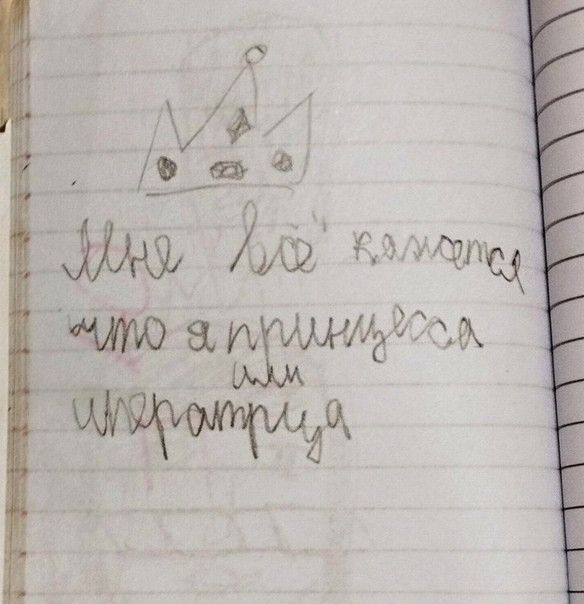 Мне всё кажется
что я принцесса
или
иператрица